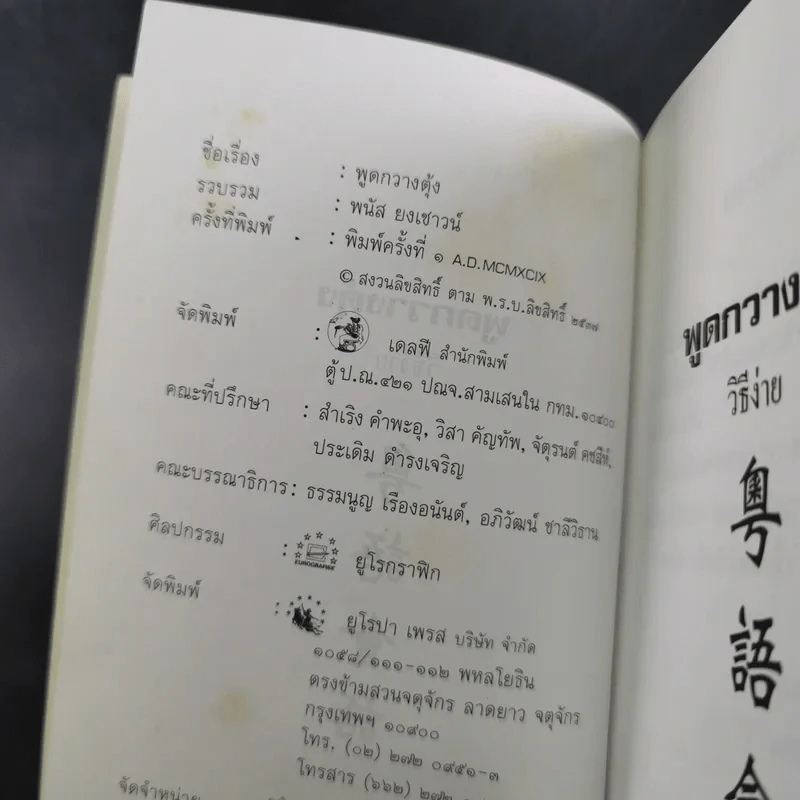 ชื่อเรื่อง : พูดกวางตุ้ง
รวบรวม : พนัส ยงเชาวน์
ครั้งที่พิมพ์ : พิมพ์ครั้งที่ ๑ A.D. MCMXCIX
© สงวนลิขสิทธิ์ ตาม พ.ร.บ.ลิขสิทธิ์ ๒๕๓๗
จัดพิมพ์ : เดลฟี สำนักพิมพ์
ตู้ป.ณ.๔๒๑ ปณจ.สามเสนใน กทม.๑๐๔๐๐
คณะที่ปรึกษา : สำเริง คำพะอุ, วิสา คัญทัพ, จัตุรนต์ คชสีห์,
ประเดิม ดำรงเจริญ
คณะบรรณาธิการ : ธรรมนูญ เรืองอนันต์, อภิวัฒน์ ชาลีวิธาน
ศิลปกรรม : EUROGRAPHIC ยูโรกราฟิก
จัดพิมพ์ : ยูโรปา เพรส บริษัท จำกัด
๑๐๕๘/๑๑๑-๑๑๒ พหลโยธิน
ตรงข้ามสวนจตุจักร ลาดยาว จตุจักร
กรุงเทพฯ ๑๐๙๐๐
โทร. (๐๒) ๒๗๒ ๐๙๕๑-๓
โทรสาร (๖๖๒) ๒๗๒
จัดจำหน่าย
พูดกวาง
วิธีง่าย
粵
語
會